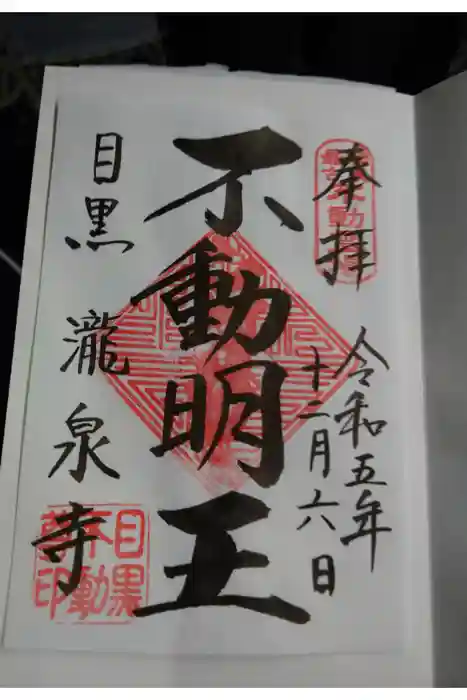 奉拝
令和五年
十二月六日
不動明王
目黒 瀧泉寺
目黒
不動